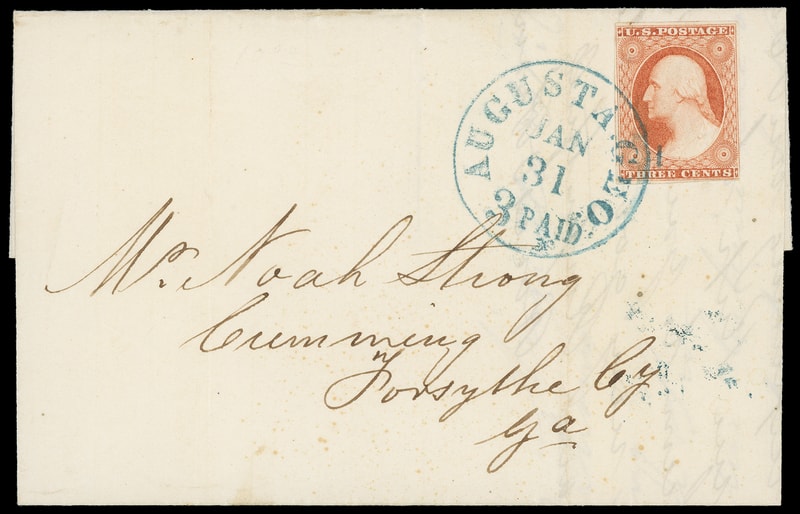 U.S. POSTAGE
THREE CENTS
AUGUSTA GEO
JAN
31
3 PAID
Mr. Noah Strong
Cumming
Forsythe Cy
Ga